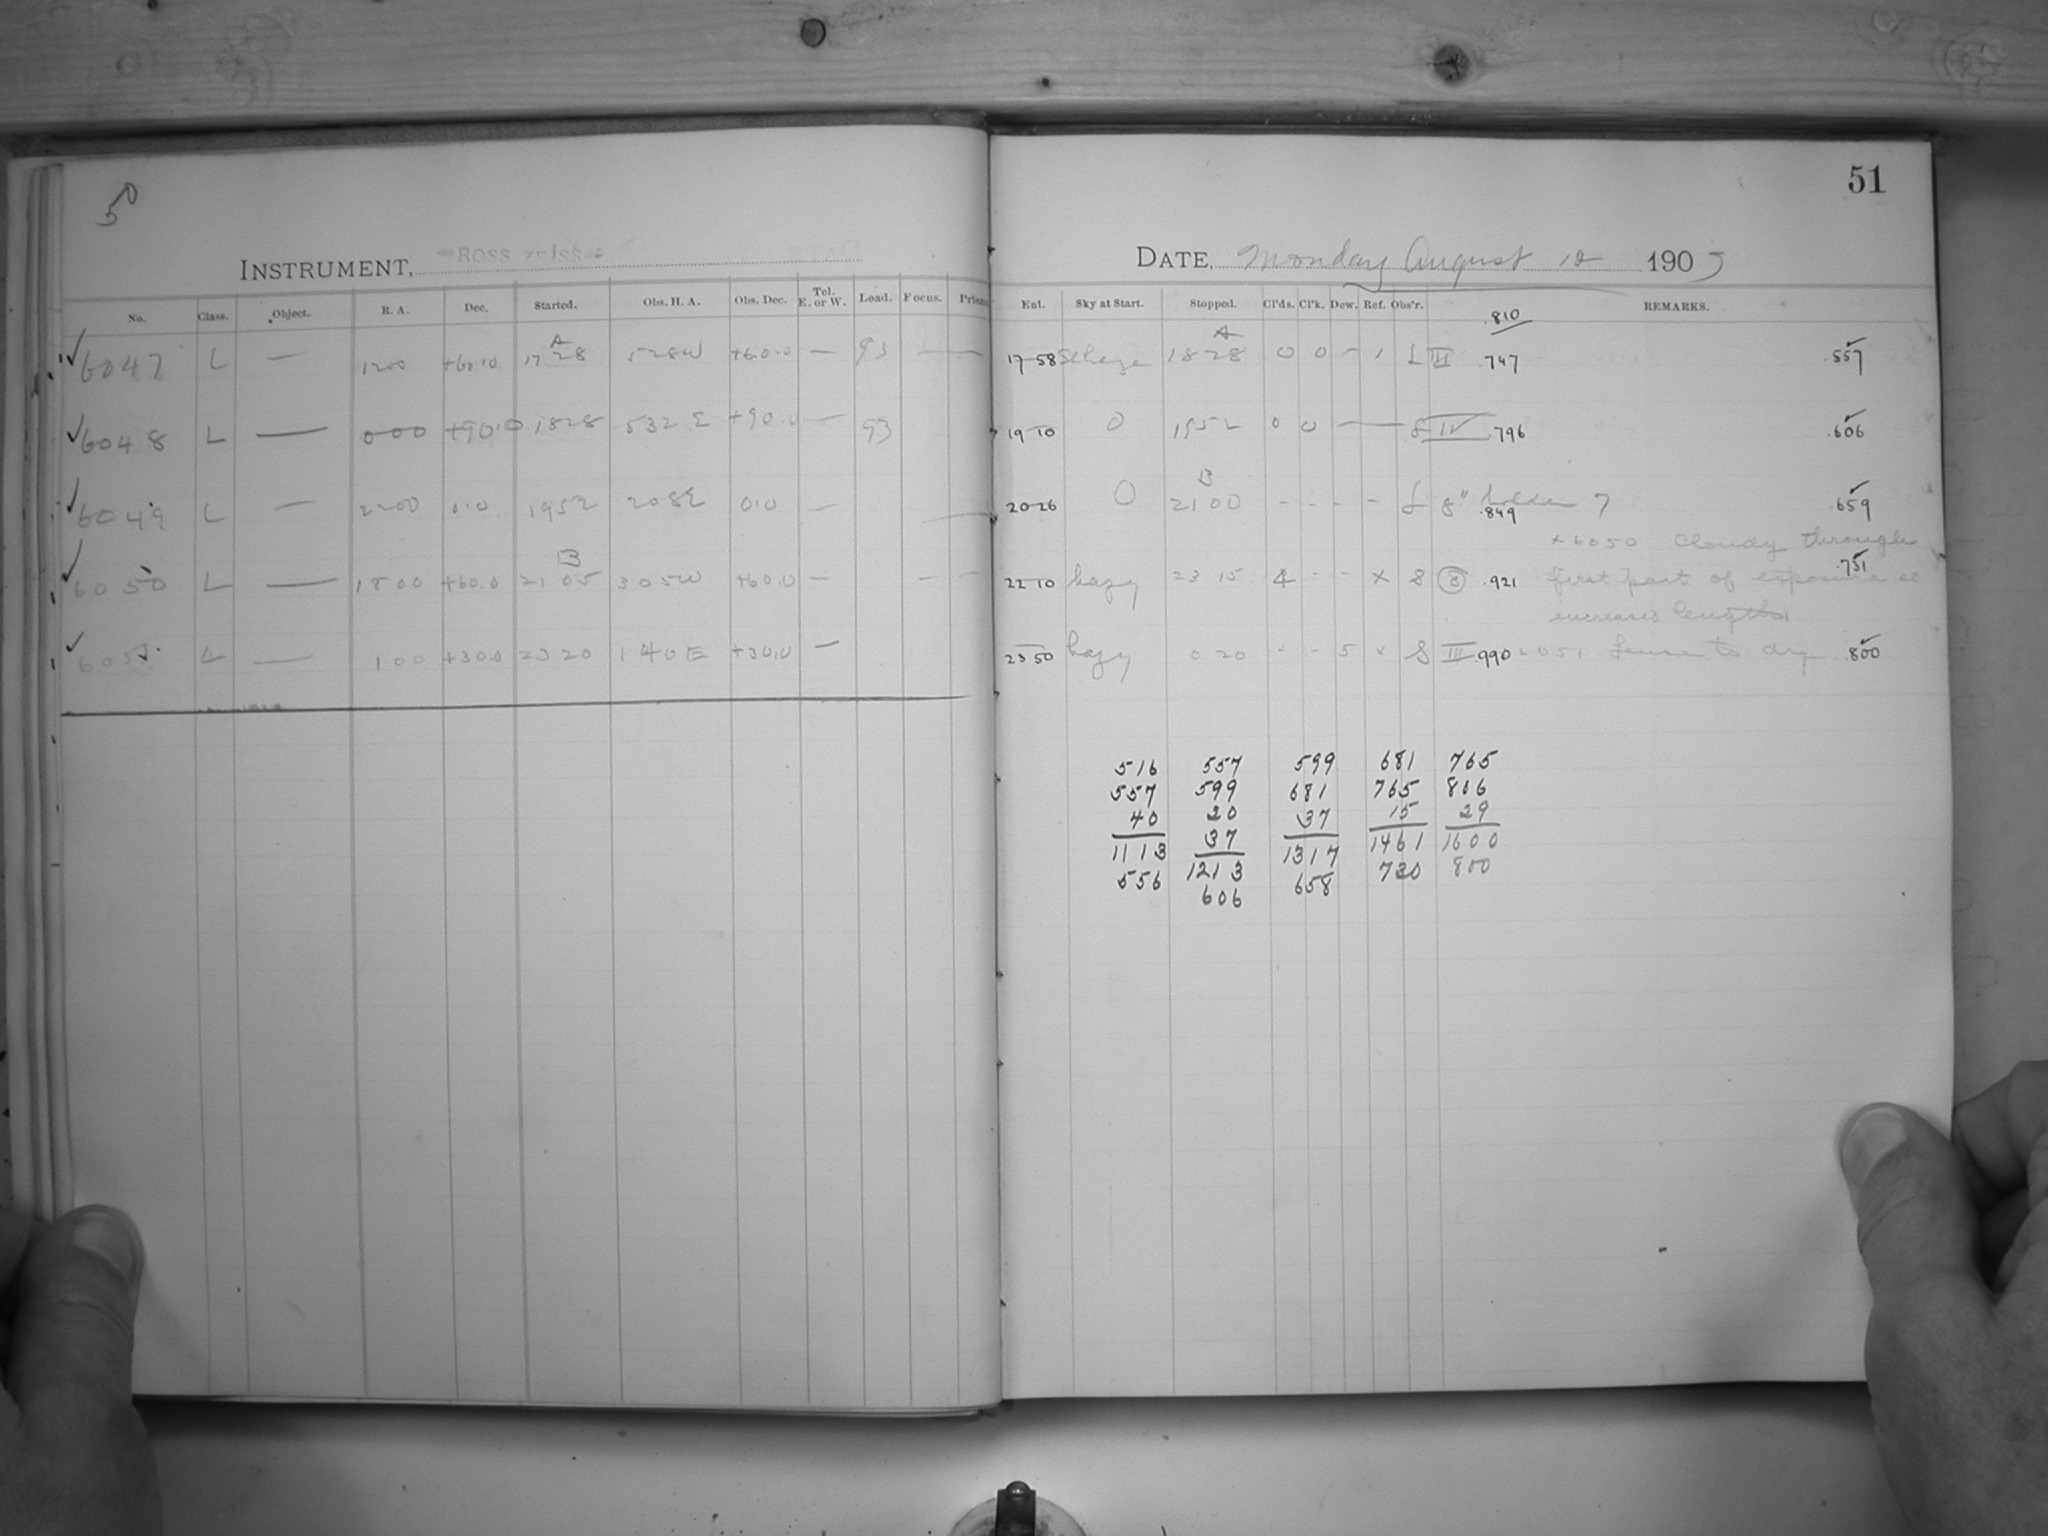 50
INSTRUMENT, ROSS
No. Class. Object. R. A. Dec. Started. Obs. H. A. Obs. Dec. Tel. E. or W. Load. Focus. Prism
A
6047 L — 1200 +60.0 17 28 528W +60.0 — 93 — —
6048 L — 000 +90.0 1828 532 E +90.0 — 93
6049 L — 2200 0.0 1952 208E 0.0 —
B
6050 L — 1800 +60.0 21 05 305W +60.0 — — —
6051 L — 100 +30.0 23 20 140E +30.0 —
51
DATE, Monday August 12 1905
Ent. Sky at Start. Stopped. Cl'ds. Cl'k. Dew. Ref. Obs'r. REMARKS.
.810
A
17-58 1828 0 0 - L III .747 .557
19-10 0 1952 0 0 — 8 IV .796 .606
B
20-26 0 2100 - - - - L 8" holder 7
.849 .659
× 6050 Cloudy through
22-10 hazy 23 15 4 - - × 8 (8) .921 first part of exposure so .731
increased length
23-50 hazy 0 20 - - 5 × 8 III .990 6051 Lense to dry .800
516 557 599 681 765
557 599 681 765 806
40 20 37 15 29
1113 37 1317 1461 1600
556 1213 658 730 800
606